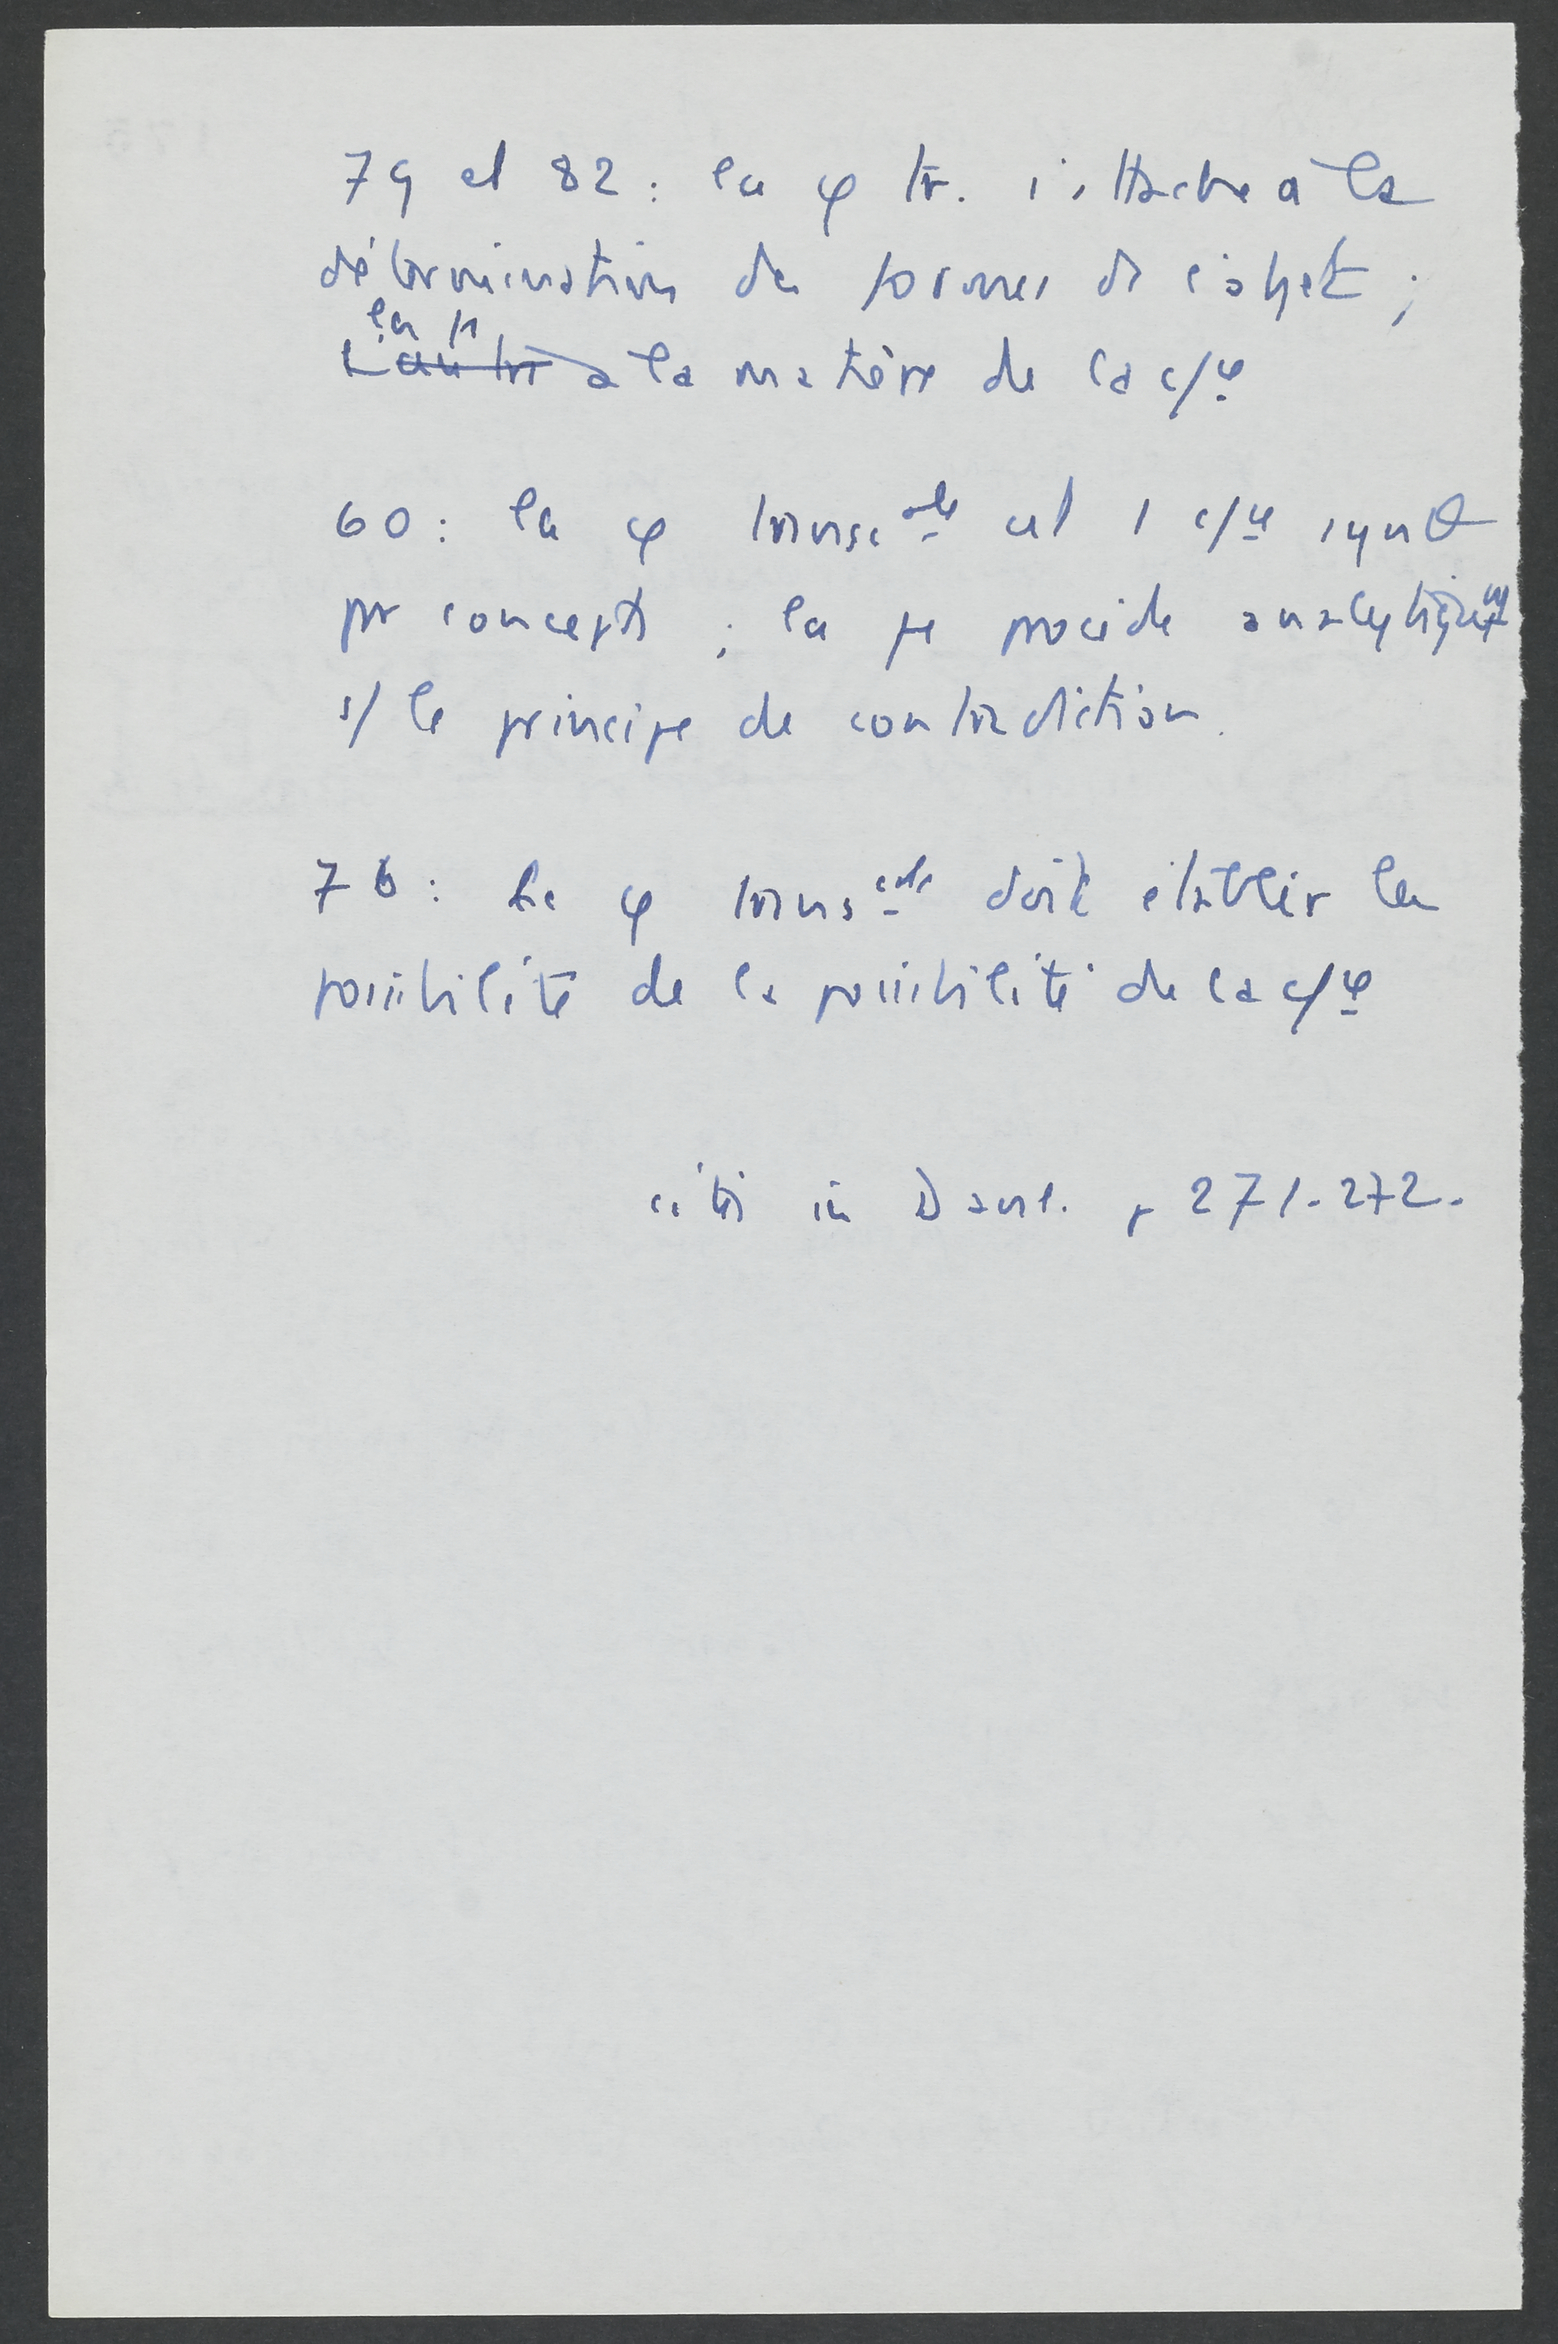 79 et 82 : la φ tr. s'attache à la
détermination des formes de l'objet ;
la
L'autre à la matière de la c/ce
60 : la φ transcale est 1 c/ce synθ
par concepts ; la procède analytiquemt
s/ le principe de contradiction.
76 : La φ transcale doit établir la
possibilité de la possibilité de la c/ce
cités in p 271-272.